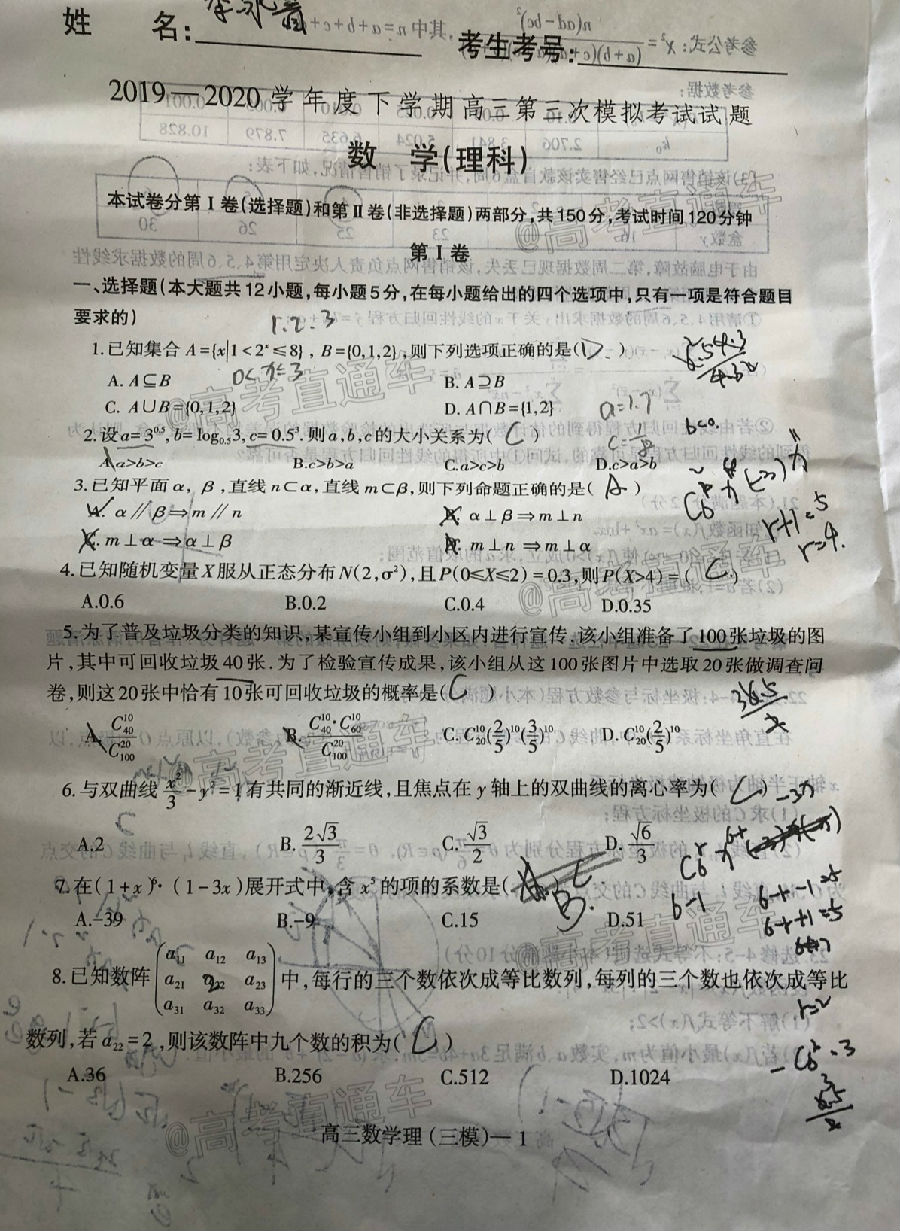 姓 名: 考生考号:
2019—2020学年度下学期高三第三次模拟考试试题
数 学(理科)
本试卷分第Ⅰ卷(选择题)和第Ⅱ卷(非选择题)两部分,共150分,考试时间120分钟
第Ⅰ卷
一、选择题(本大题共12小题,每小题5分,在每小题给出的四个选项中,只有一项是符合题目
要求的)
1.已知集合 A={x|1<2ˣ≤8} , B={0,1,2} ,则下列选项正确的是( D )
A. A⊆B B. A⊇B
C. A∪B={0,1,2} D. A∩B={1,2}
2.设a=3^{0.5},b=log_{0.5}3,c=0.5³.则a,b,c的大小关系为( C )
A.a>b>c B.c>b>a C.a>c>b D.c>a>b
3.已知平面α, β ,直线n⊂α,直线m⊂β,则下列命题正确的是( A )
A. α∥β⇒m∥n B. α⊥β⇒m⊥n
C. m⊥α⇒α⊥β D. m⊥n ⇒m⊥α
4.已知随机变量X服从正态分布N(2,σ²),且P(0≤X≤2)=0.3,则P(X>4)=( C )
A.0.6 B.0.2 C.0.4 D.0.35
5.为了普及垃圾分类的知识,某宣传小组到小区内进行宣传.该小组准备了100张垃圾的图
片,其中可回收垃圾40张.为了检验宣传成果,该小组从这100张图片中选取20张做调查问
卷,则这20张中恰有10张可回收垃圾的概率是( C )
A. C_{40}^{10}/C_{100}^{20} B. C_{40}^{10}·C_{60}^{10}/C_{100}^{20} C. C_{20}^{10}(2/5)^{10}(3/5)^{10} D. C_{20}^{10}(2/5)^{10}
6.与双曲线 x²/3 −y²=1有共同的渐近线,且焦点在y轴上的双曲线的离心率为( C )
A.2 B. 2√3/3 C. √3/2 D. √6/3
7.在(1+x)⁶·(1−3x)展开式中,含x⁵的项的系数是( B. )
A.−39 B.−9 C.15 D.51
8.已知数阵 (a₁₁ a₁₂ a₁₃
a₂₁ a₂₂ a₂₃
a₃₁ a₃₂ a₃₃) 中,每行的三个数依次成等比数列,每列的三个数也依次成等比
数列,若a₂₂=2,则该数阵中九个数的积为( C )
A.36 B.256 C.512 D.1024
高三数学理(三模)—1
@高考直通车